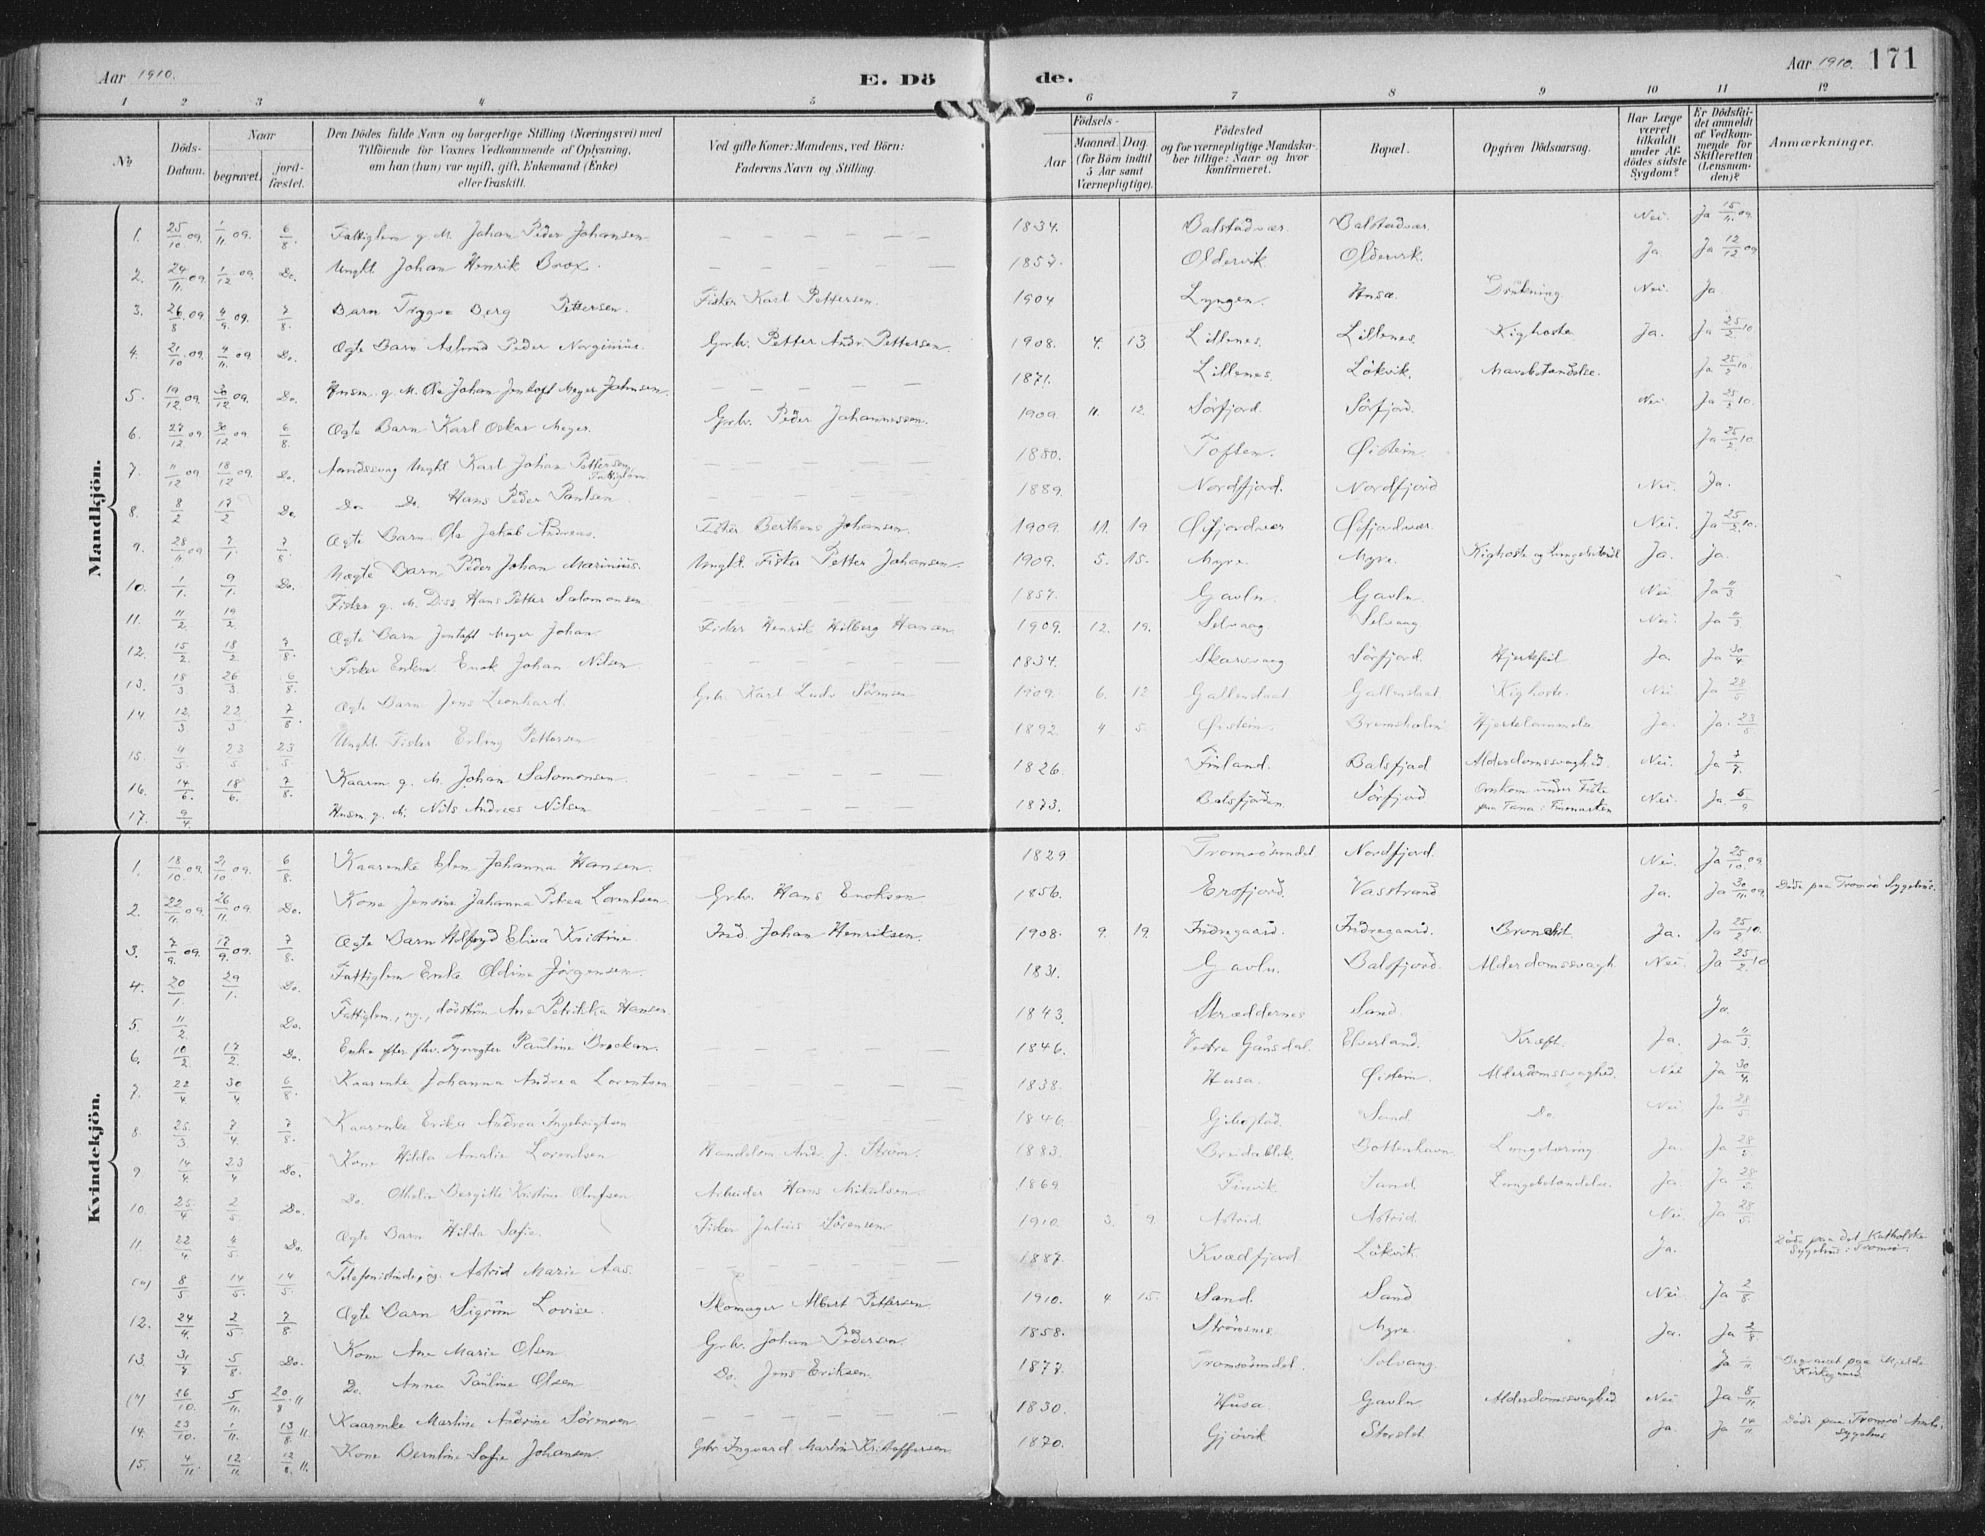 Aar 1910. E. Dö de. Aar 1910. 171
1 2 3 4 5 6 7 8 9 10 11 12
No Döds-Datum. Naar begravet. jordfæstet. Den Dödes fulde Navn og borgerlige Stilling (Næringsvei) med Tilföiende for Voxnes Vedkommende af Oplysning, om han (hun) var ugift, gift, Enkemand (Enke) eller fraskilt. Ved gifte Koner: Mandens, ved Börn: Faderens Navn og Stilling. Födsels- Aar Maaned. Dag. (for Börn indtil 5 Aar samt Værnepligtige). Födested og for værnepligtige Mandskaber tillige: Naar og hvor konfirmeret. Bopæl. Opgiven Dödsaarsag. Har Læge været tilkaldt under Afdödes sidste Sygdom? Er Dödsfaldet anmeldt af Vedkommende for Skifteretten (Lensmanden)? Anmærkninger.
Mandkjön.
1. 25/10 09. 1/11 09. 6/8. Fattiglem g. M. Johan Peder Johansen 1834. Balstadvær Balstadvær. Nei. Ja 15/11 09.
2. 24/11 09. 1/12 09. Do. Ungkl. Johan Henrik Brox. 1857. Oldervik Oldervik. Ja. Ja 12/12 09
3. 26/8 09. 4/9 09. 7/8. Barn Trygve Berg Pettersen. Fisker Karl Pettersen. 1904 Lyngen. Husa. Drukning Nei. Ja.
4. 21/10 09. 4/11. Do. Ægte Barn Aslund Peder Norginius. Grbr. Petter Andr. Pettersen. 1908. 4. 13 Lillenes. Lillenes. Kighoste Ja. Ja 25/2 10
5. 19/12 09. 30/12 09. Do. Husm. g. M. Ole Johan Jentoft Meyer Johnsen 1871. Lillenes. Lökvik. Mavebetændelse. Ja 25/2 10.
6. 27/12 09 30/12 09 6/8. Ægte Barn Karl Oskar Meyer. Grbr. Peder Johannessen. 1909. 11. 12. Sörfjord. Sörfjord. Nei. Ja 25/2 10.
7. 11/12 09. 18/12 09. Do. Aandssvag Ungkl. Karl Johan Pettersen Fattiglem 1880. Toften. Öistein. Ja 25/2 10
8. 8/2 17/2 Do. Do Do. Hans Peder Paulsen 1889. Nordfjord. Nordfjord Nei. Ja.
9. 28/11 09 7/1. 7/8. Ægte Barn Ole Jakob Andreas. Fisker Berthens Johansen. 1909. 11. 19. Öifjordvær Öifjordvær. Nei. Ja 25/2 10.
10. 1/1. 9/1. Do. Uægte Barn Peder Johan Marinius. Ungkl. Fisker Petter Johansen. 1909. 5. 15. Myre. Myre. Kighoste og Lungebetænd. Ja. Ja.
11. 11/2 19/2. Fisker g. M. Diss. Hans Petter Salomonsen 1857. Gavln. Gavln. Nei Ja 11/3.
12. 15/2. 18/2 7/8. Ægte Barn Jentoft Meyer Johan. Fisker Henrik Hilberg Hansen. 1909. 12. 19. Selvaag Selvaag Nei. Ja 11/3
13. 18/3 26/3. 6/8. Fisker Enkem. Enok Johan Nilsen 1834. Skarsvaag Sörfjord. Hjertefeil Ja. Ja 30/4
14 12/3 22/3 7/8. Ægte Barn Jens Leonhard. Grbr. Karl Ludv. Sörensen 1909. 6. 12 Gallenstad Gallenstad Kighoste. Nei. Ja 28/5
15. 4/5. 23/5 23/5 Ungkl. Fisker Erling Pettersen 1892 4 5. Öistein. Bremsholm Hjertelammelse Ja. Ja 23/5
16. 14/6. 18/6. 7/8. Kaarm g. M. Johan Salomonsen. 1826. Finland. Balsfjord Alderdomssvaghed. Nei. Ja 7/7.
17. 9/4. Husm. g. M. Nils Andreas Nilsen 1873. Balsfjorden Sörfjord Omkom under Fiske paa Tana i Finmarken Nei. Ja. 5/9
Kvindekjön.
1. 18/10 09. 21/10 09. 6/8. Kaarenke Elen Johanna Hansen. 1829. Tromsösundet Nordfjord. Nei. Ja 25/10 09.
2. 22/11 09. 26/11 09. Do. Kone Jensine Johanna Petrea Lorentsen Grbr. Hans Enoksen 1856. Ersfjord. Vasstrand Ja. Ja 30/11 09. Döde paa Tromsö Sygehus.
3. 7/9 09. 17/9 09. 7/8. Ægte Barn Holfryd Elisa Kristine. Ind. Johan Henriksen. 1908. 9. 19. Indregaard. Indregaard. Bronchit Ja. Ja 25/2 10.
4. 20/1. 29/1. Do. Fattiglem Enke Oldine Jörgensen. 1831. Gavln. Balsfjord. Alderdomssvagh. Nei. Ja 25/2 10
5. 11/2. Do. Fattiglem, ug., dövstum Ane Petrikka Hansen 1843. Skræddernes Sand. Ja.
6. 10/2 17/2. Do. Enke efter fhv. Fyrvogter Pauline Brockum. 1846. Vestre Gausdal. Elverland. Kræft. Ja. Ja 11/3
7. 22/4 30/4 6/8. Kaarenke Johanna Andrea Lorentsen 1838. Husa. Öistein. Alderdomssvaghed. Nei Ja 30/4.
8. 25/3 7/4. 7/8. Kaarenke Erika Andrea Ingebrigtsen 1846. Gibostad. Sand Do Nei Ja 28/5.
9 14/4 23/4 Do. Kone Hilda Amalie Lorentsen Handelsm. And. J. Ström. 1883. Breidablik. Bottenhavn Lungetæring Ja. Ja 28/5
10. 25/4 2/5. Do. Do. Othelie Bergitte Kristine Olufsen Arbeider Hans Mikalsen. 1869 Finvik. Sand Lungebetændelse. Ja. Ja 28/5.
11. 22/4 4/5. Do. Ægte Barn Hilda Sofie. Fisker Julius Sörensen 1910. 3. 9. Astrid Astrid. Nei Ja 28/5.
(") 8/5 14/5. 14/5. Telefonistinde, ug. Astrid Marie Aas. 1887. Kvædfjord Lökvik. Ja. Döde paa det Katholske Sygehus i Tromsö.
12. 24/4. 2/5. 7/8 Ægte Barn Sigrun Lovise. Skomager Albert Pettersen. 1910. 4. 15. Sand. Sand Nei. Ja 2/8
13. 31/7 5/8. Do. Kone Ane Marie Olsen Grbr. Johan Pedersen. 1858. Strömsnes Myre. Ja. Ja 2/8
(") 26/10. 5/11. 20/8 11 Do. Anna Pauline Olsen Do. Jens Eriksen. 1877. Tromsösundet. Solvang. Ja 1/11. Begravet paa Mjelde Kirkegaard.
14. 23/10. 1/11. 13/8 11. Kaarenke Martine Andrine Sörensen. 1830. Husa. Gavln Alderdomssvaghed Nei Ja 8/11.
15. 4/11. 12/11. 12/8. 11. Kone Berntine Sofie Johansen. Grbr Ingvard Martin Kristoffersen 1870. Gjövik Storslet. Ja. Ja 14/11. Döde paa Tromsö Amts. Sygehus